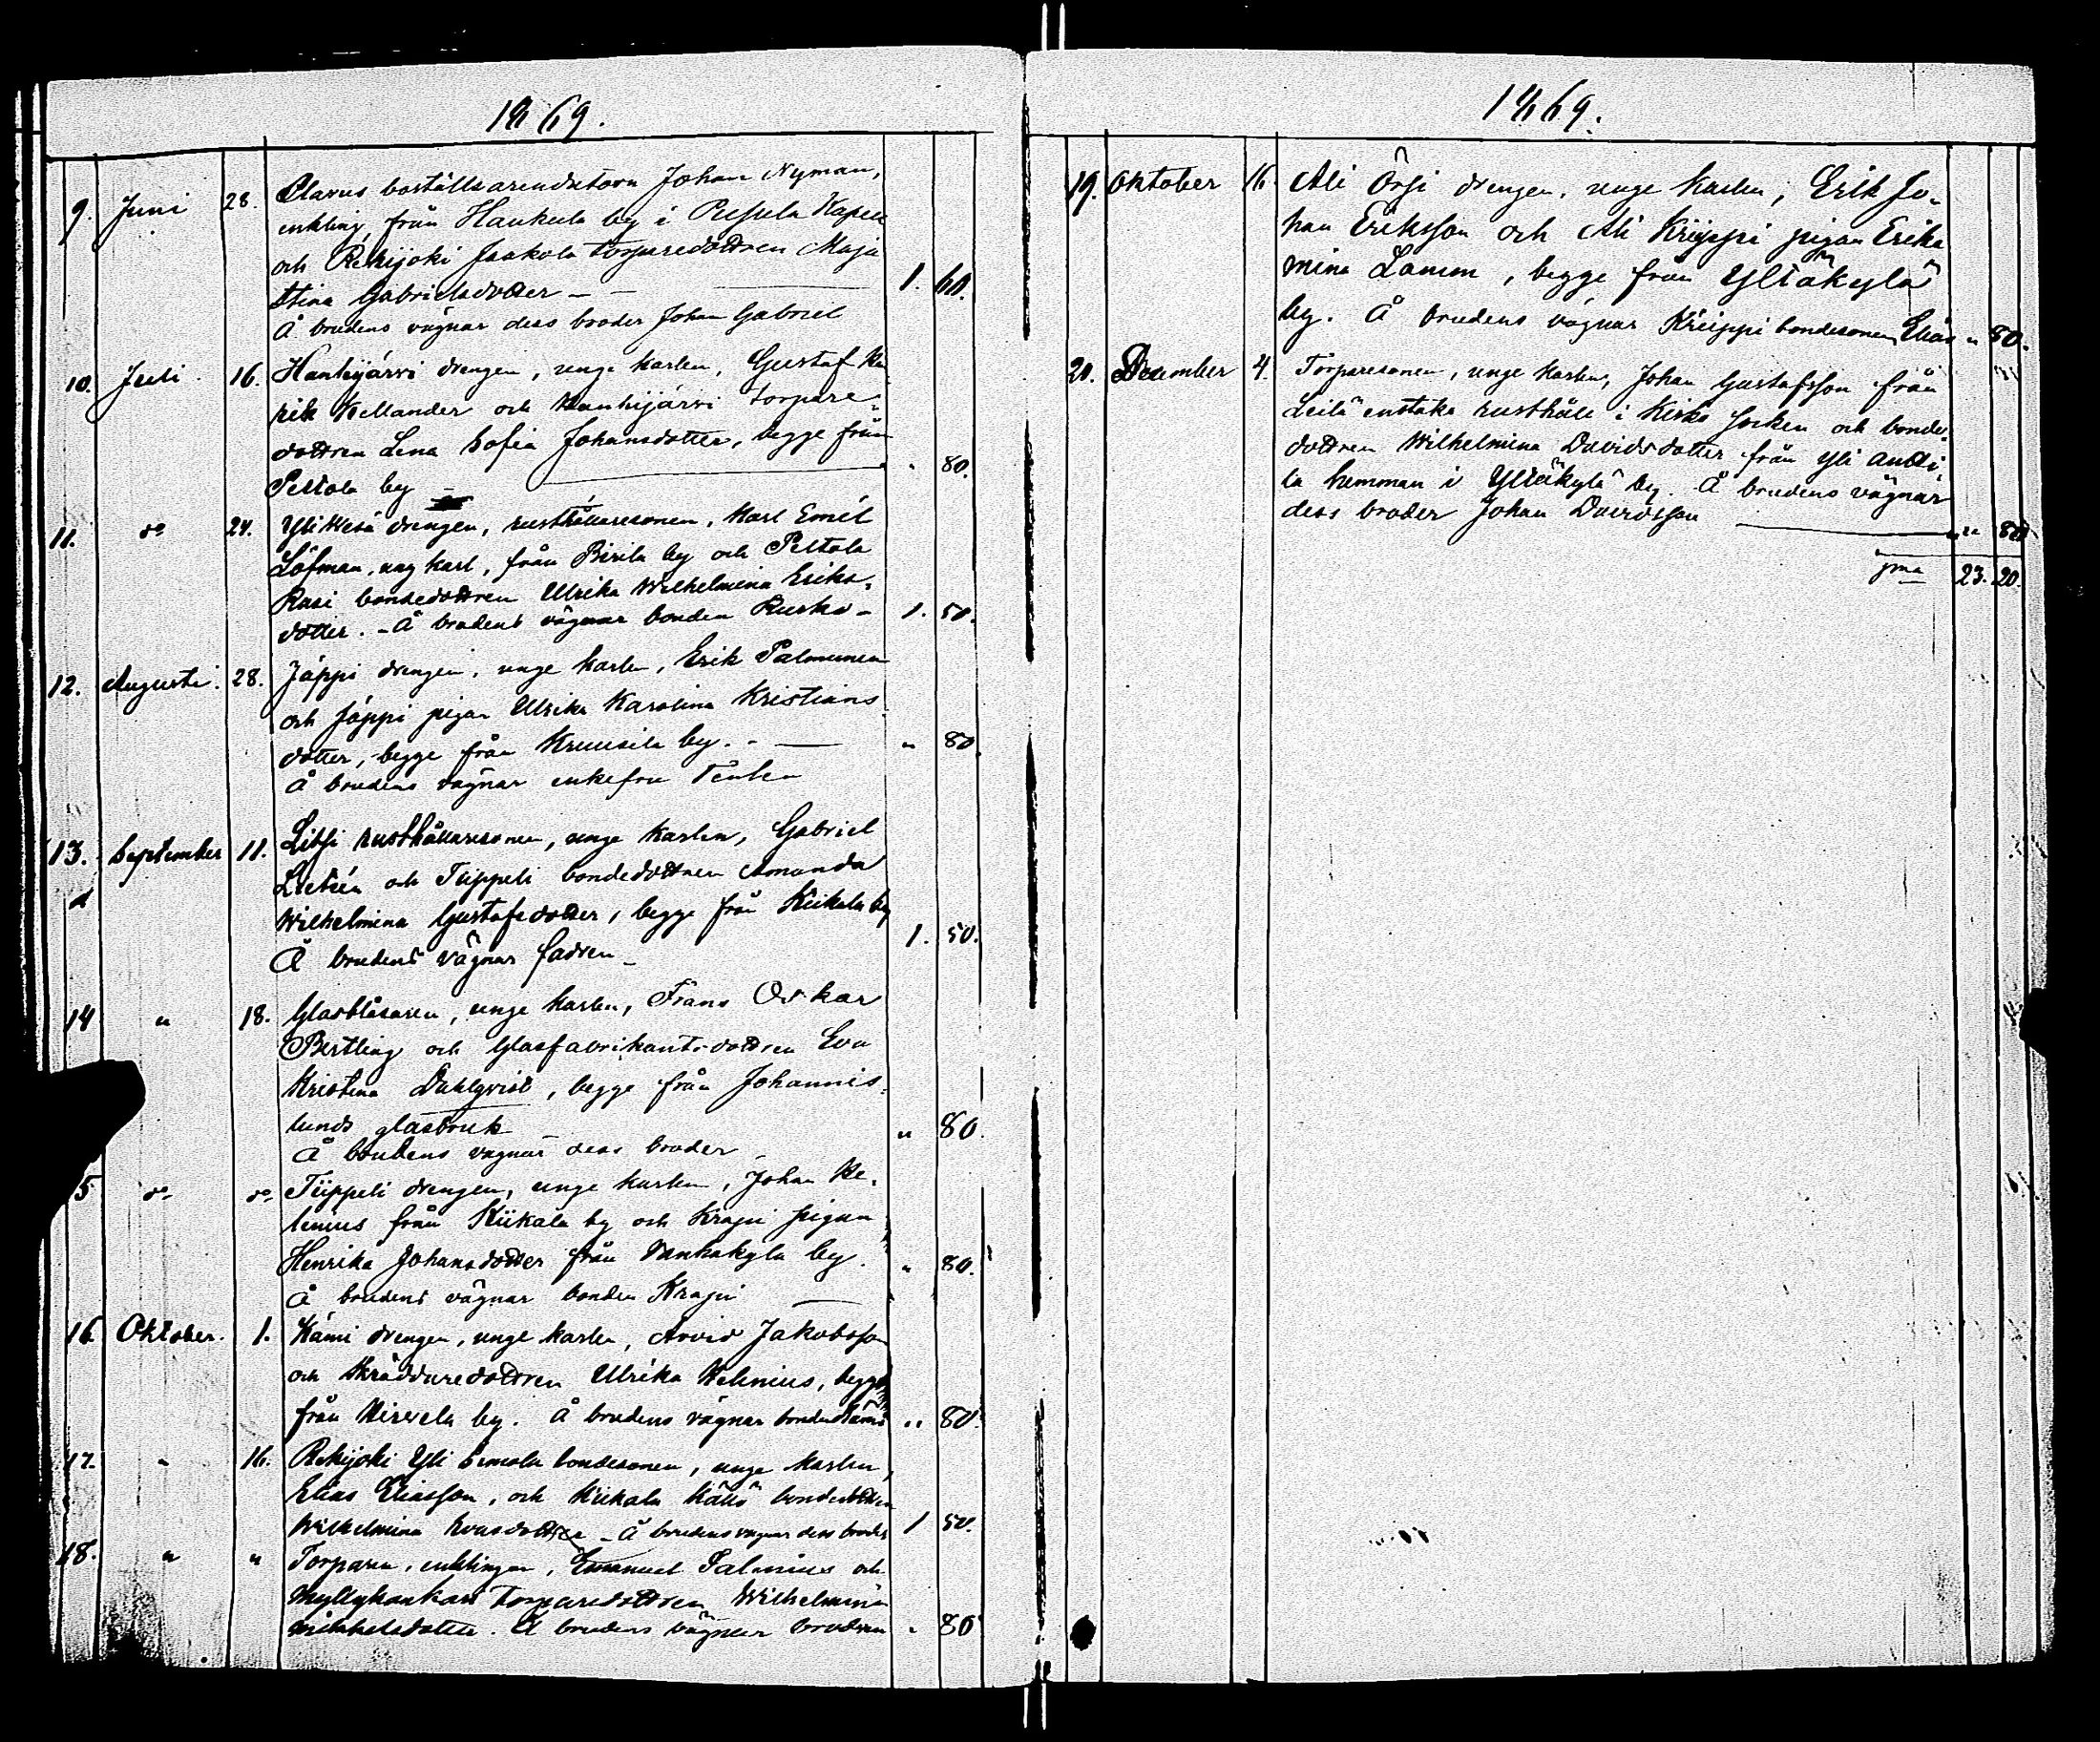 1869.
9. Juni 28. Olavus boställsarendatorn Johan Nyman,
enkling, från Haukula by i Pusula Kapell
och Rekijoki Jaakola torparedottren Maja
Stina Gabrielsdotter — 1. 60.
Å brudens vägnar dess broder Johan Gabriel
10. Juli 16. Hanhijärvi drengen, unge karlen, Gustaf Hen
rik Kellander och Hanhijärvi torpare-
dottren Lena Sofia Johansdotter, begge från
Peltola by — " 80.
11. do 24. Yli Kesä drengen, rusthållaresonen, Karl Emil
Löfman, ung karl, från Pirila by och Peltola
Rasi bondedottren Ulrika Wilhelmina Eriks-
dotter. - Å brudens vägnar bonden Rusko - 1. 50.
12. Augusti. 28. Jäppi drengen, unge karlen, Erik Palmunen
och Jäppi pigan Ulrika Karolina Kristians
dotter, begge från Kruusila by. - — " 80.
Å brudens vägnar enkefru
13. September 11. rusthållaresonen, unge karlen, Gabriel
och Tiippeli bondedottren Amanda
Wilhelmina Gustafsdotter, begge från Kiikala by
Å brudens vägnar fadren — 1. 50.
14 " 18. Glasblåsaren, unge karlen, Frans Oskar
Bertling och Glasfabrikantsdottren Eva
Kristina Dahlqvist, begge från Johannis-
lunds glasbruk " 80.
Å brudens vägnar dess broder
5 do do Tiippeli drengen, unge karlen, Johan He-
lenius från Kiikala by och Krapi pigan
Henrika Johansdotter från Vankakylä by. " 80.
Å brudens vägnar bonden Krapi —
16. Oktober. 1. Kämi drengen, unge karlen, Arvid Jakobsson
och Skräddaredottren Ulrika Helenius, begge
från Hirvela by. Å brudens vägnar bonden Kämi " 80.
17. " 16. Rekijoki Yli Simola bondesonen, unge karlen,
Elias Eliasson, och Kiikala bondedottren
Wilhelmina - Å brudens vägnar dess broder 1 50.
18. " " Torparen, enklingen, Emanuel Salenius och
Myllyhankas torparedottren Wilhelmina
Mikkelsdotter. Å brudens vägnar brodren " 80
1869.
19. Oktober 16. Ali Örsi drengen, unge karlen, Erik Jo-
han Eriksson och Ali Kriippi pigan Erika
Mina Lamm, begge från Yltäkylä
by. Å brudens vägnar Kriippi bondesonen Elias " 80.
20. December 4. Torparesonen, unge karlen, Johan Gustafsson från
Leilä enstaka rusthåll i Kisko Socken och bonde-
dottren Wilhelmina Davidsdotter från Yli Antti-
la hemman i Yltäkylä by. Å brudens vägnar
dess broder Johan Davidsson — " 80
Sma 23. 20.